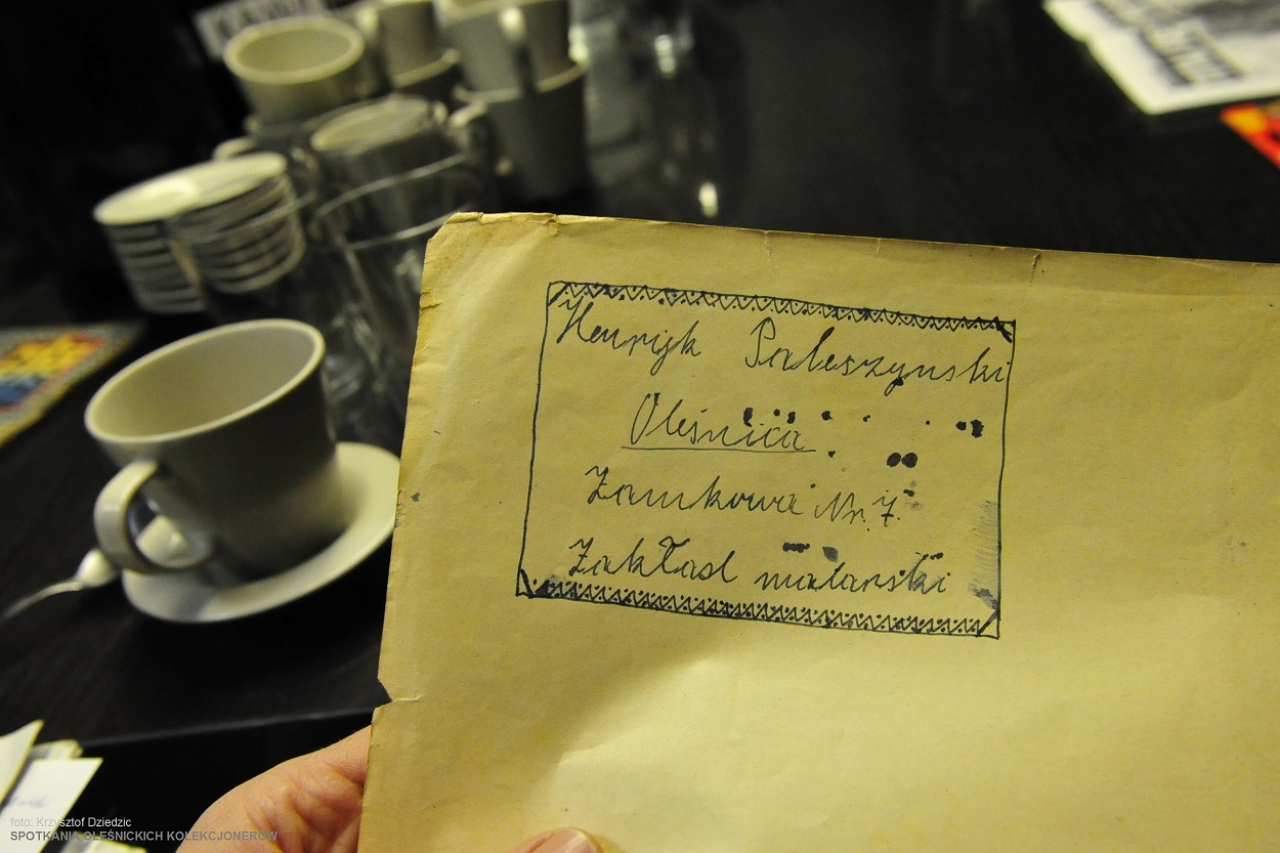 Henryk Paleszynski
Oleśnica
Zamkowa Nr. 7.
Zakład malarski
foto: Krzysztof Dziedzic
SPOTKANIA OLEŚNICKICH KOLEKCJONERÓW